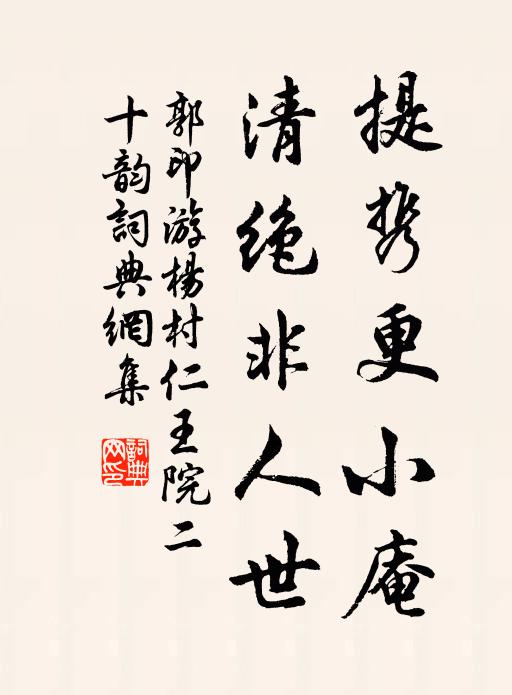 提携更小庵
清绝非人世
郭印游楊村仁王院二
十韵詞典網集
詞典網印